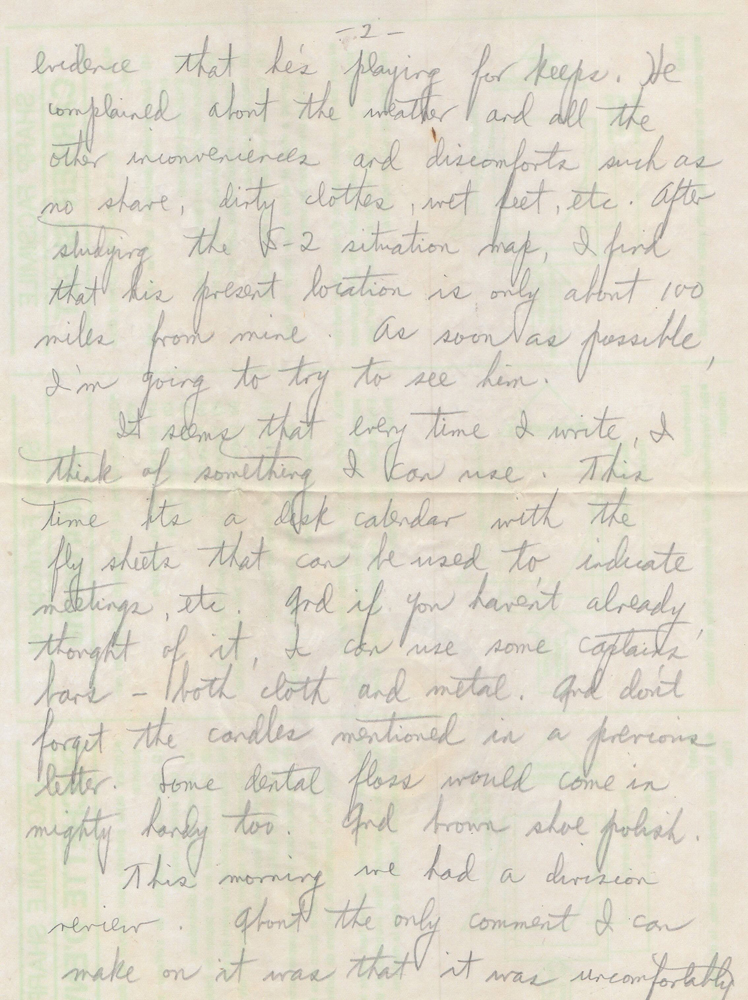 -2-
evidence that he's playing for keeps. He
complained about the weather and all the
other inconveniences and discomforts such as
no shave, dirty clothes, wet feet, etc. After
studying the S-2 situation map, I find
that his present location is only about 100
miles from mine. As soon as possible,
I'm going to try to see him.
It seems that every time I write, I
think of something I can use. This
time its a desk calendar with the
fly sheets that can be used to indicate
meetings, etc. And if you haven't already
thought of it, I can use some captains'
bars - both cloth and metal. And don't
forget the candles mentioned in a previous
letter. Some dental floss would come in
mighty handy too. And brown shoe polish.
This morning we had a division
review. About the only comment I can
make on it was that it was uncomfortably